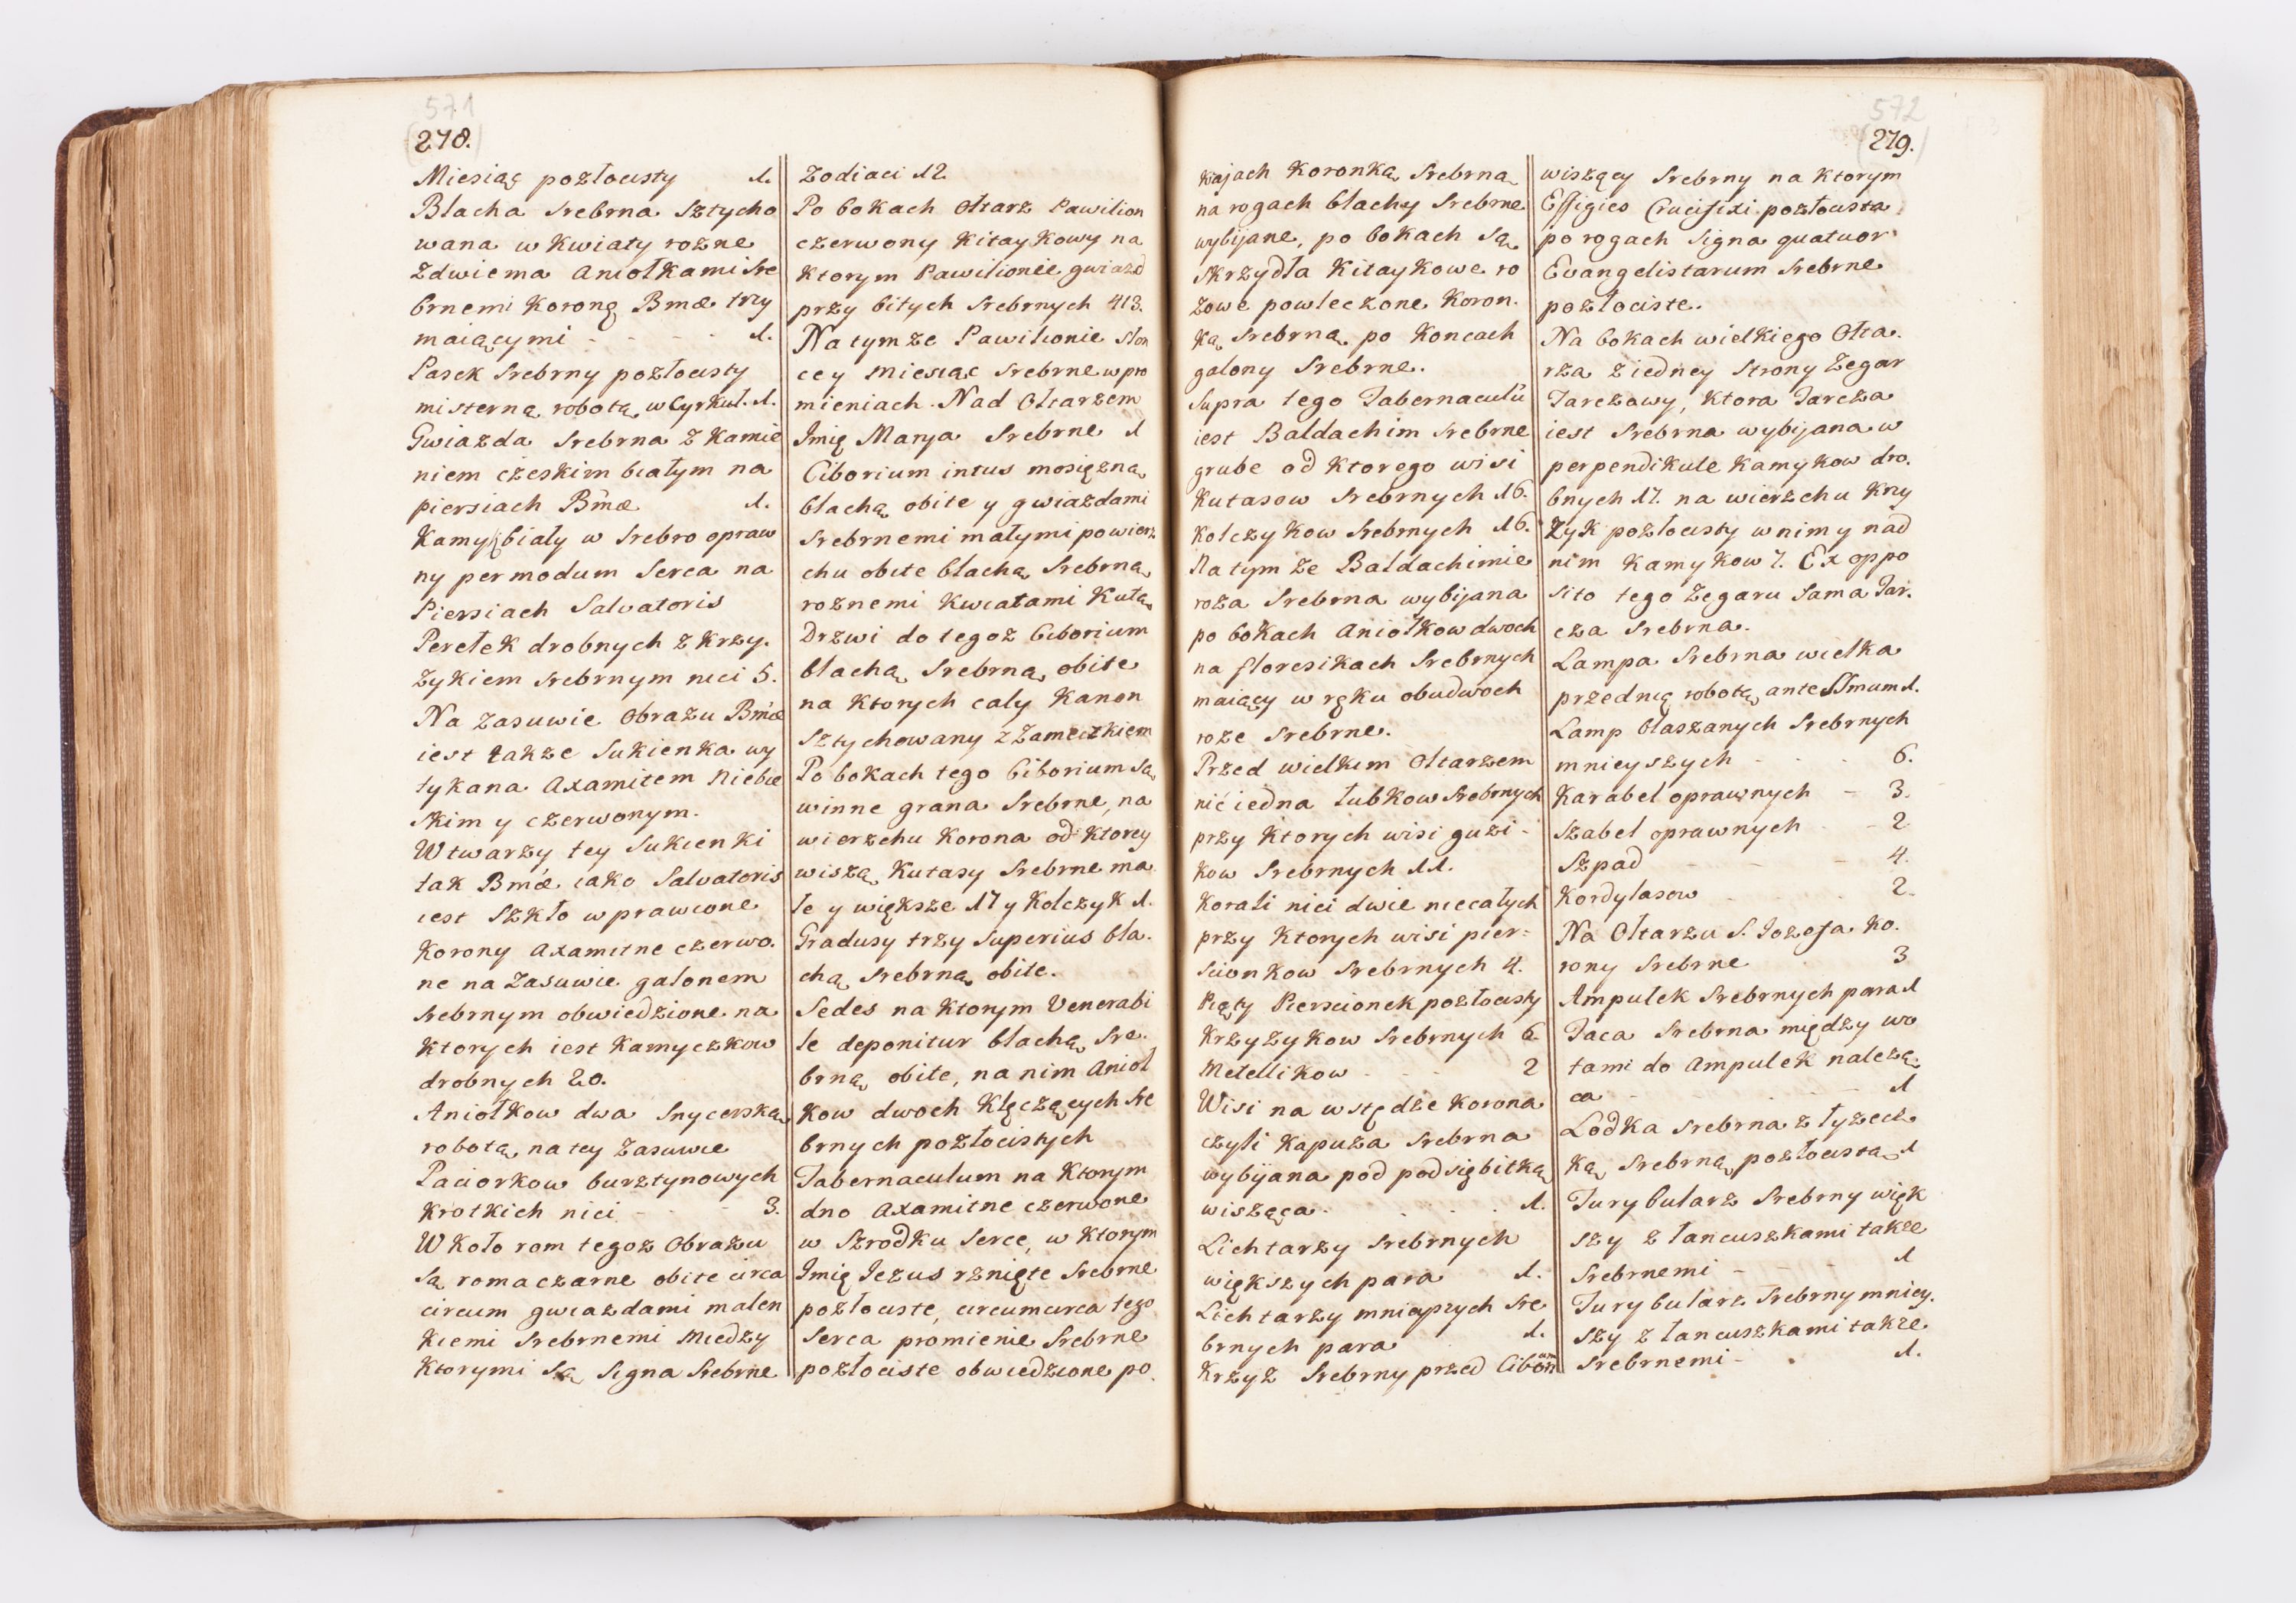 571
278.
Miesiąc pozłocisty 1.
Blacha srebrna sztycho
wana w kwiaty rozne
zdwiema Aniołkami sre
brnemi koronę Bmæ trzy
maiącymi - - - 1.
Pasek srebrny pozłocisty
misterną robotą w Cyrkuł. 1.
Gwiazda srebrna z kamie
niem czeskim białym na
piersiach Bmæ 1.
Kamyk biały w srebro opraw
ny per modum serca na
Piersiach Salvatoris
Perełek drobnych z krzy.
zykiem srebrnym nici 5.
Na zasuwie Obrazu Bmæ
iest takze sukienka wy
tykana Axamitem Niebie
skim y czerwonym.
W twarzy tey sukienki
tak Bmæ iako Salvatoris
iest szkło wprawione
Korony axamitne czerwo.
ne na zasuwie galonem
srebrnym obwiedzione na
ktorych iest kamyczkow
drobnych 20.
Aniołkow dwa snycerską
robotą na tey zasuwie
Paciorkow bursztynowych
krotkich nici - - 3.
W koło rom tegoz Obrazu
są roma czarne obite circa
circum gwiazdami malen
kiemi srebrnemi miedzy
ktorymi są signa srebrne
Zodiaci 12
Po bokach Ołtarz Pawilion
czerwony kitaykowy na
ktorym Pawilionie gwiazd
przy bitych srebrnych 413.
Na tymze Pawilionie słon
ce y miesiąc srebrne w pro
mieniach. Nad Ołtarzem
Imię Marya srebrne 1
Ciborium intus mosięzną
blachą obite y gwiazdami
srebrnemi małymi powierz
chu obite blachą srebrną
roznemi kwiatami kutą
Drzwi do tegoz Ciborium
blachą srebrną obite
na ktorych cały Kanon
sztychowany z zameczkiem
Po bokach tego Ciborium są
winne grana srebrne, na
wierzchu korona od ktorey
wiszą kutasy srebrne ma
łe y większe 17 y kolczyk 1.
Gradusy trzy superius bla.
chą srebrną obite.
Sedes na ktorym Venerabi
le deponitur blachą sre.
brną obite, na nim Anioł
kow dwoch klęczących sre
brnych pozłocistych
Tabernaculum na ktorym
dno axamitne czerwone
w szrodku serce, w ktorym
Imię Jezus rznięte srebrne
pozłociste, circumcirca tego
serca promienie srebrne
pozłociste obwiedzione po
572
279.
krajach koronką srebrną
na rogach blachy srebrne
wybijane, po bokach są
skrzydła kitaykowe ro
zowe powleczone koron.
ką srebrną po koncach
galony srebrne.
Supra tego Tabernaculū
iest Baldachim srebrne
grube od ktorego wisi
kutasow srebrnych 16.
kolczykow srebrnych 16.
Na tym ze Baldachimie
roza srebrna wybijana
po bokach Aniołkow dwoch
na floresikach srebrnych
maiący w ręku obudwoch
roze srebrne.
Przed wielkim Ołtarzem
nić iedna łubkow srebrnych
przy ktorych wisi guzi-
kow srebrnych 11.
Korali nici dwie niecałych
przy ktorych wisi pier=
scionkow srebrnych 4.
Piąty Pierscionek pozłocisty
Krzyzykow srebrnych 6.
Metellikow - - 2
Wisi na wstędze korona
czyli kapuza srebrna
wybijana pod podsiębitką
wisząca. . . . 1.
Lichtarzy srebrnych
większych para 1.
Lichtarzy mnieyszych sre
brnych para 1.
Krzyz srebrny przed Cibori um
wiszący srebrny na ktorym
Effigies Crucifixi pozłocista
po rogach signa quatuor
Evangelistarum srebrne
pozłociste.
Na bokach wielkiego Ołta.
rza z iedney strony Zegar
Tarczowy, ktora Tarcza
iest srebrna wybijana w
perpendikule kamykow dro.
bnych 17. na wierzchu krzy
zyk pozłocisty w nim y nad
nim kamykow 7. Ex oppo
sito tego Zegaru sama Tar.
cza srebrna.
Lampa srebrna wielka
przednią robotą ante SSmum 1.
Lamp blaszanych srebrnych
mnieyszych - - - 6.
Karabel oprawnych - 3.
Szabel oprawnych - 2
Szpad - - - 4.
Kordylasow - - 2.
Na Ołtarzu S. Jozefa ko.
rony srebrne 3
Ampułek srebrnych para 1
Taca srebrna między wo
tami do Ampulek nalezą.
ca - - - 1
Łodka srebrna z łyzecz
ką srebrną pozłocistą 1
Turybularz srebrny więk
szy z łancuszkami takze
srebrnemi - - - 1
Turybularz srebrny mniey.
szy z łancuszkami takze
srebrnemi - . 1.